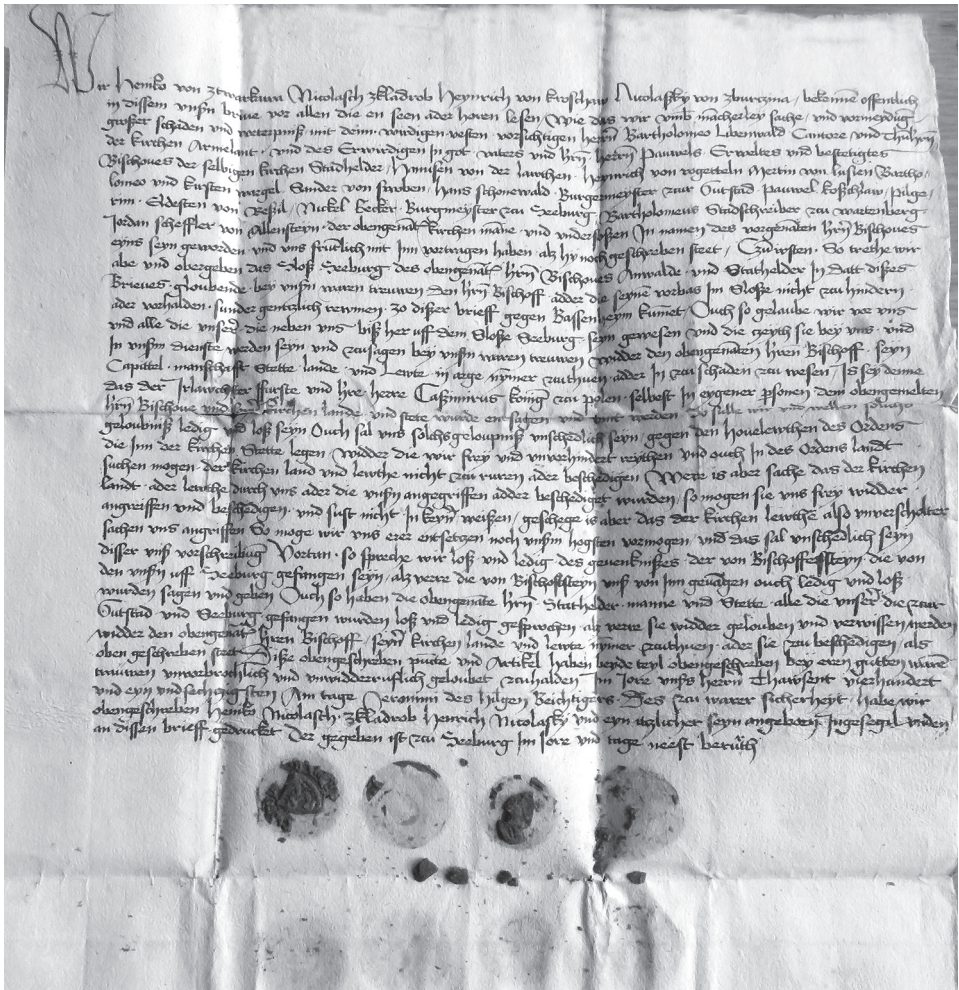 Wir Heniko von ztwarkuwa Nicolasch zkladrob Heynrich von kroschaw Nicolasky von zburczina, bekenne offentlich
in dissem unsn brive vor allen die en seen ader horen lesen, Wie das wir vmb mācherley sache, und vormeydūg
großer schaden vnd veterpniß mit deme wirdigen vesten vorsichtigen herrn Bartholomeo Libenwald Cantore vnd Thūhrn
der kirchen Armelant, vnd des Erwirdigen In got vaters vnd hrn herrn Pauwels Erweltes vnd bestetigtes
Bischoves der selbigen kirchen Stadhelder, Hannsen von der lawthen, Heynrich von rogetteln Mertin von lusien Bartho-
lomeo vnd kirsten wargel. Sander von sworben, Hans schonewald Burgermeyster zcur Gutstad, pauwel koßchlaw, pilge-
rim Eldesten von Reßil, Nickel kecker Burgmeyster zcu Seeburg Bartholomeus Stadschreiber zcu wartenberg
Jordan scheffler von Allensteyn, der obengenāte kirchen mane vnd vndersoßen In namen des vorgenāten hrn Bischoves
eyns seyn geworden vnd vns frūtlich mit Inn vortragen haben als hy noch geschreben steet, Czu irsten. So trethe wir
abe vnd obergeben das Sloß Seeburg des obengenāte hrn Bischoves Anwalde vnd Statholder In datt dißes
Brieves, gloubende bey vnsn waren treuwen den hrn Bischoff adder die seynē vorbas Im Sloße nicht zcu hindern
ader vorhalden, sunder gentzlich rewmen, zo dißer brieff gegen Bassenheym kumet, Ouch so gelaube wir vor vns
vnd alle die vnser, die neben vns biß her uff dem Sloße Seeburg seyn gewesen vnd die czeyth sie bey vns vnd
In vnsm dienste werden seyn vnd zcusagen bey vnsn waren treuwen widder den obengenāten hren Bischoff, seyn
Capittel, manschafft Stette lande vnd Lewte in arge nymer zcuthuen adder In zcu schaden zcu wesen, Is sey denne
das der Irlawchter furste vnd hre herre Caßimirus konig zcu polen, selbest In eygener psonen dem obengenielten
hrn Bischove vnd der kirchen lande vnd stete wurde entsagen vnd vint werden So sulle wir vnd wellen solchs
geloubniß ledig vnd loß seyn Ouch sal vns solchs geloupniß vnschedlich seyn, gegen den hovelewthen des Ordens
die Inn der kirchen Stette legen, widder die wir frey vnd vnvorhindert reythen vnd ouch In des Ordens landt
suchen mogen, der kirchen land vnd lewthe nicht zcu ruren ader beschedigen, Were is aber sache das der kirchen
landt ader lewthe durch vns ader die vnsn angegriffen adder beschediget wurden, so mogen sie vns frey widder
angreiffen vnd beschedigen, vnd sust nicht In keyn weißen, geschege is aber das der kirchen lewthe also vnverscholter
sachen vns angriffen So moge wir vns erer entsetzen noch vnsm hogsten vormogen, vnd das sal vnschedlich seyn
disser vnß vorschreibūg Vortan, so spreche wir loß vnd ledig des gevenknißes, der von Bischoffeßsteyn, die von
den vnsn uff Seeburg gefangen seyn, als verre die von Bischoffsteyn vnß von Inn gevāgen ouch ledig vnd loß
wurden sagen vnd geben Ouch so haben die obengenāte hrn Statholder, manne vnd Stette, alle die vnser, die zcur
Gutstad vnd Seeburg gefangen wurden loß vnd ledig gesprochen, als verre sie widder gelouben vnd verwissen werden
widder den obengenāt hren Bischoff, seyn kirchen lande vnd lewte nymer zcuthuen, ader sie zcu beschedigen, als
oben geschreben steet Diße obengeschreben pūcte vnd Artikel haben beyde teyl obengeschreben bey eren gutten waren
trauwen vnvorbrochlich vnd vnwidderruflich geloubet zcuhalden Im Jore vnß herrn Thawsent vierhundert
vnd eyn vnd sechczigsten Am tage Jeronimi des hilgen Beichtigers, Des zcu warer sicherheyt, habe wir
obengeschreben Heniko Nicolasch, zkladrob Henrich Nicolasky vnd eyn itzlicher seyn angeborn Ingesegil vnden
an dissen brieff gedrucket Der gegeben ist zcu Seeburg Im Jore vnd tage neest berūth